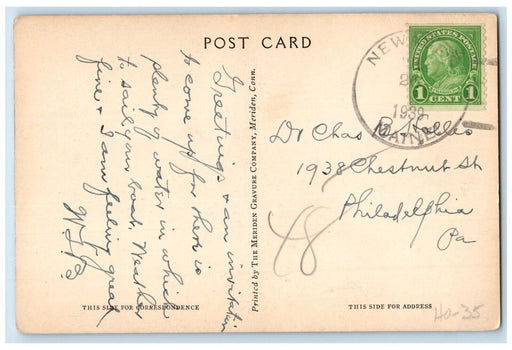 POST CARD
Greetings & an invitation
to come up for there is
plenty of water in which
to sail your boat. Weather
fine & I am feeling great
Printed by THE MERIDEN GRAVURE COMPANY, Meriden, Conn.
NEW
2
1939
MAINE
UNITED STATES POSTAGE
1 CENT 1
Dr Chas
1938 Chestnut St
Philadelphia
Pa
48
THIS SIDE FOR CORRESPONDENCE
THIS SIDE FOR ADDRESS
40-35